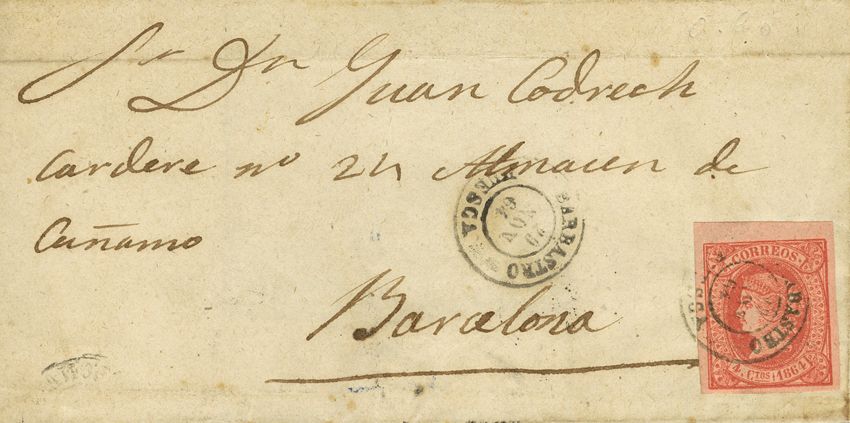 Sr Dn Juan Codrech
Cardere nº 24 Almacen de
Cañamo
Barcelona
BARBASTRO HUESCA
29 NOV 64
CORREOS.
BARBASTRO
4. CTOS. 1864